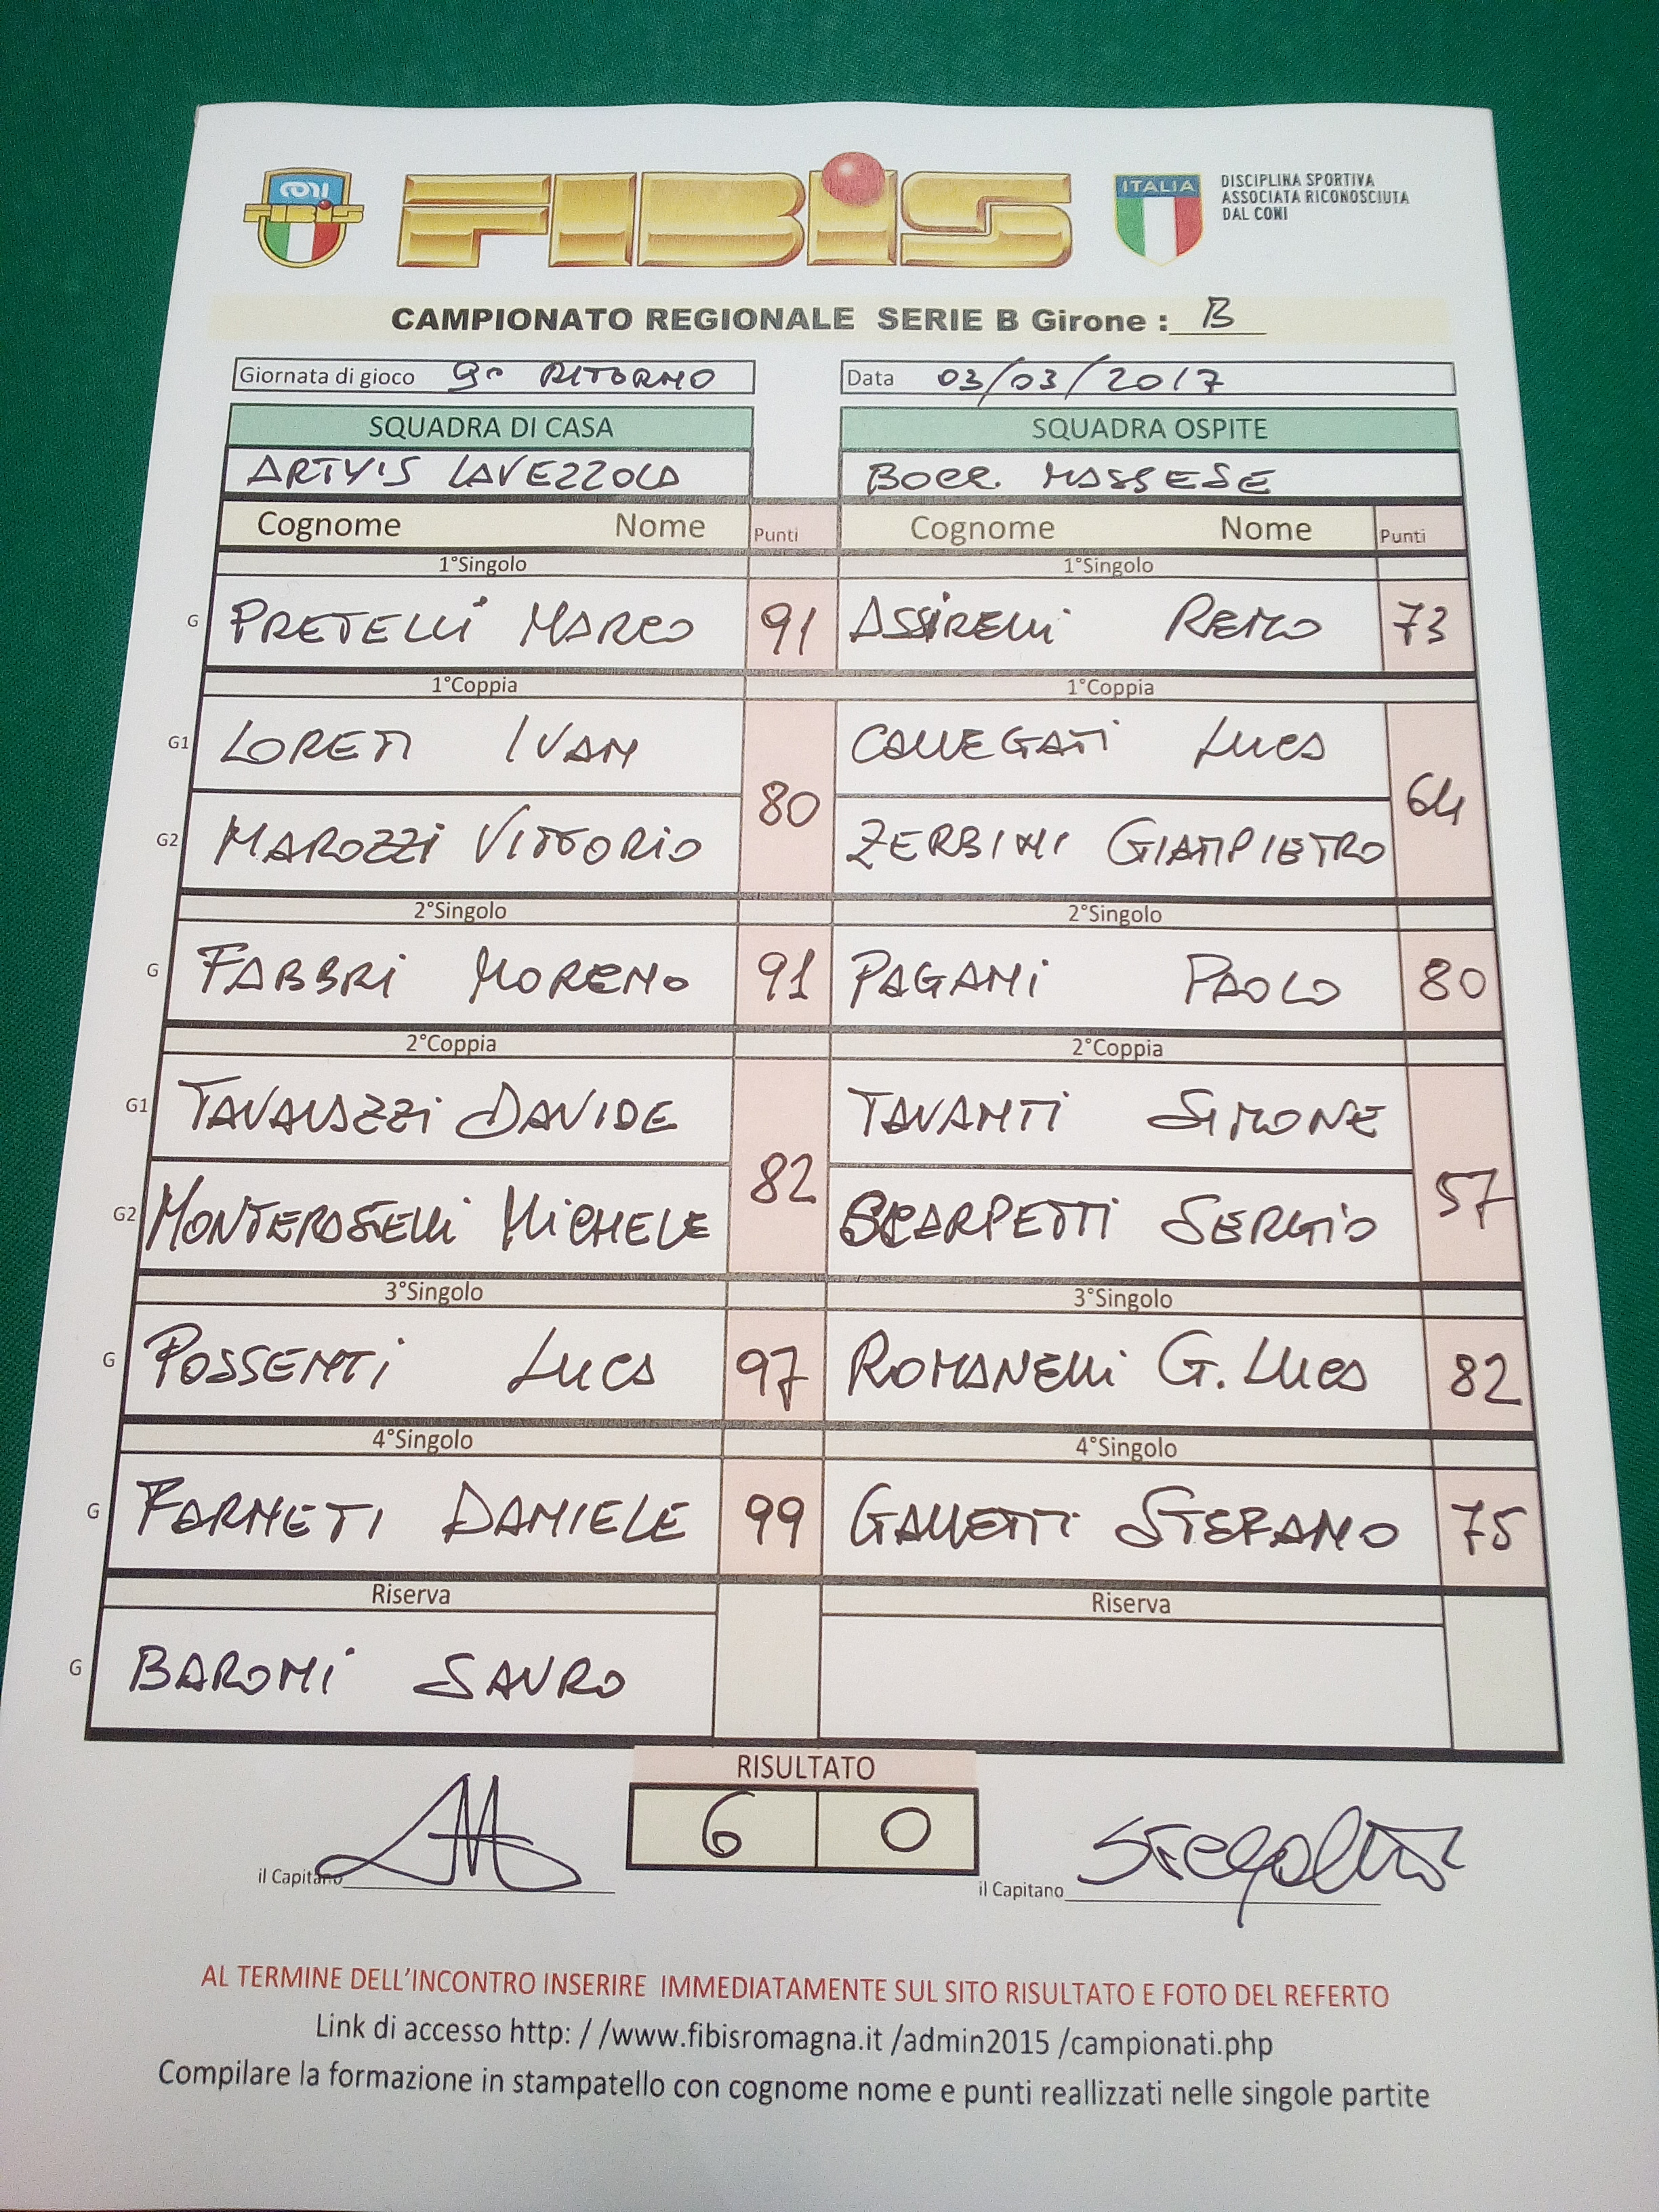 CONI
FIBIS
FIBIS
ITALIA
DISCIPLINA SPORTIVA
ASSOCIATA RICONOSCIUTA
DAL CONI
CAMPIONATO REGIONALE SERIE B Girone : B
Giornata di gioco 9° RITORNO Data 03/03/2017
SQUADRA DI CASA SQUADRA OSPITE
ARTY'S LAVEZZOLA BOCC. MASSESE
Cognome Nome Punti Cognome Nome Punti
1°Singolo 1°Singolo
G PRETELLI MARCO 91 ASSIRELLI REMO 73
1°Coppia 1°Coppia
G1 LORETI IVAN CALLEGATI LUCA
80 64
G2 MAROZZI VITTORIO ZERBINI GIAMPIETRO
2°Singolo 2°Singolo
G FABBRI MORENO 91 PAGANI PAOLO 80
2°Coppia 2°Coppia
G1 TAVALAZZI DAVIDE TAVANTI SIMONE
82 57
G2 MICHELE SCARPETTI SERGIO
3°Singolo 3°Singolo
G POSSENTI LUCA 97 ROMANELLI G. LUCA 82
4°Singolo 4°Singolo
G FARNETI DANIELE 99 GALLETTI STEFANO 75
Riserva Riserva
G BARONI SAURO
RISULTATO
6 0
il Capitano il Capitano
AL TERMINE DELL'INCONTRO INSERIRE IMMEDIATAMENTE SUL SITO RISULTATO E FOTO DEL REFERTO
Link di accesso http: / /www.fibisromagna.it /admin2015 /campionati.php
Compilare la formazione in stampatello con cognome nome e punti reallizzati nelle singole partite